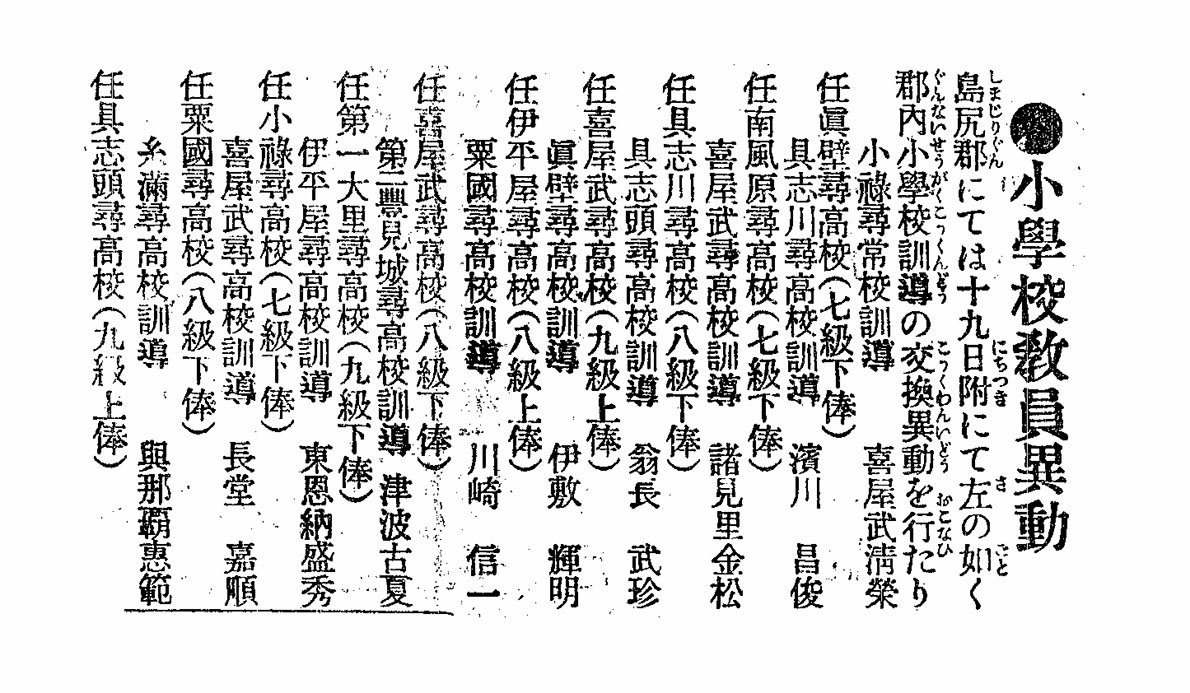 ●小學校教員異動
島尻郡にては十九日附にて左の如く
郡內小學校訓導の交換異動を行たり
小祿尋常校訓導 喜屋武淸榮
任眞壁尋高校(七級下俸)
具志川尋高校訓導 濱川 昌俊
任南風原尋高校(七級下俸)
喜屋武尋高校訓導 諸見里金松
任具志川尋高校(八級下俸)
具志頭尋高校訓導 翁長 武珍
任喜屋武尋高校(九級上俸)
眞壁尋高校訓導 伊敷 輝明
任伊平屋尋高校(八級上俸)
粟國尋高校訓導 川崎 信一
任喜屋武尋高校(八級下俸)
第二豐見城尋高校訓導 津波古夏
任第一大里尋高校(九級下俸)
伊平屋尋高校訓導 東恩納盛秀
任小祿尋高校(七級下俸)
喜屋武尋高校訓導 長堂 嘉順
任粟國尋高校(八級下俸)
糸滿尋高校訓導 與那覇惠範
任具志頭尋高校(九級上俸)